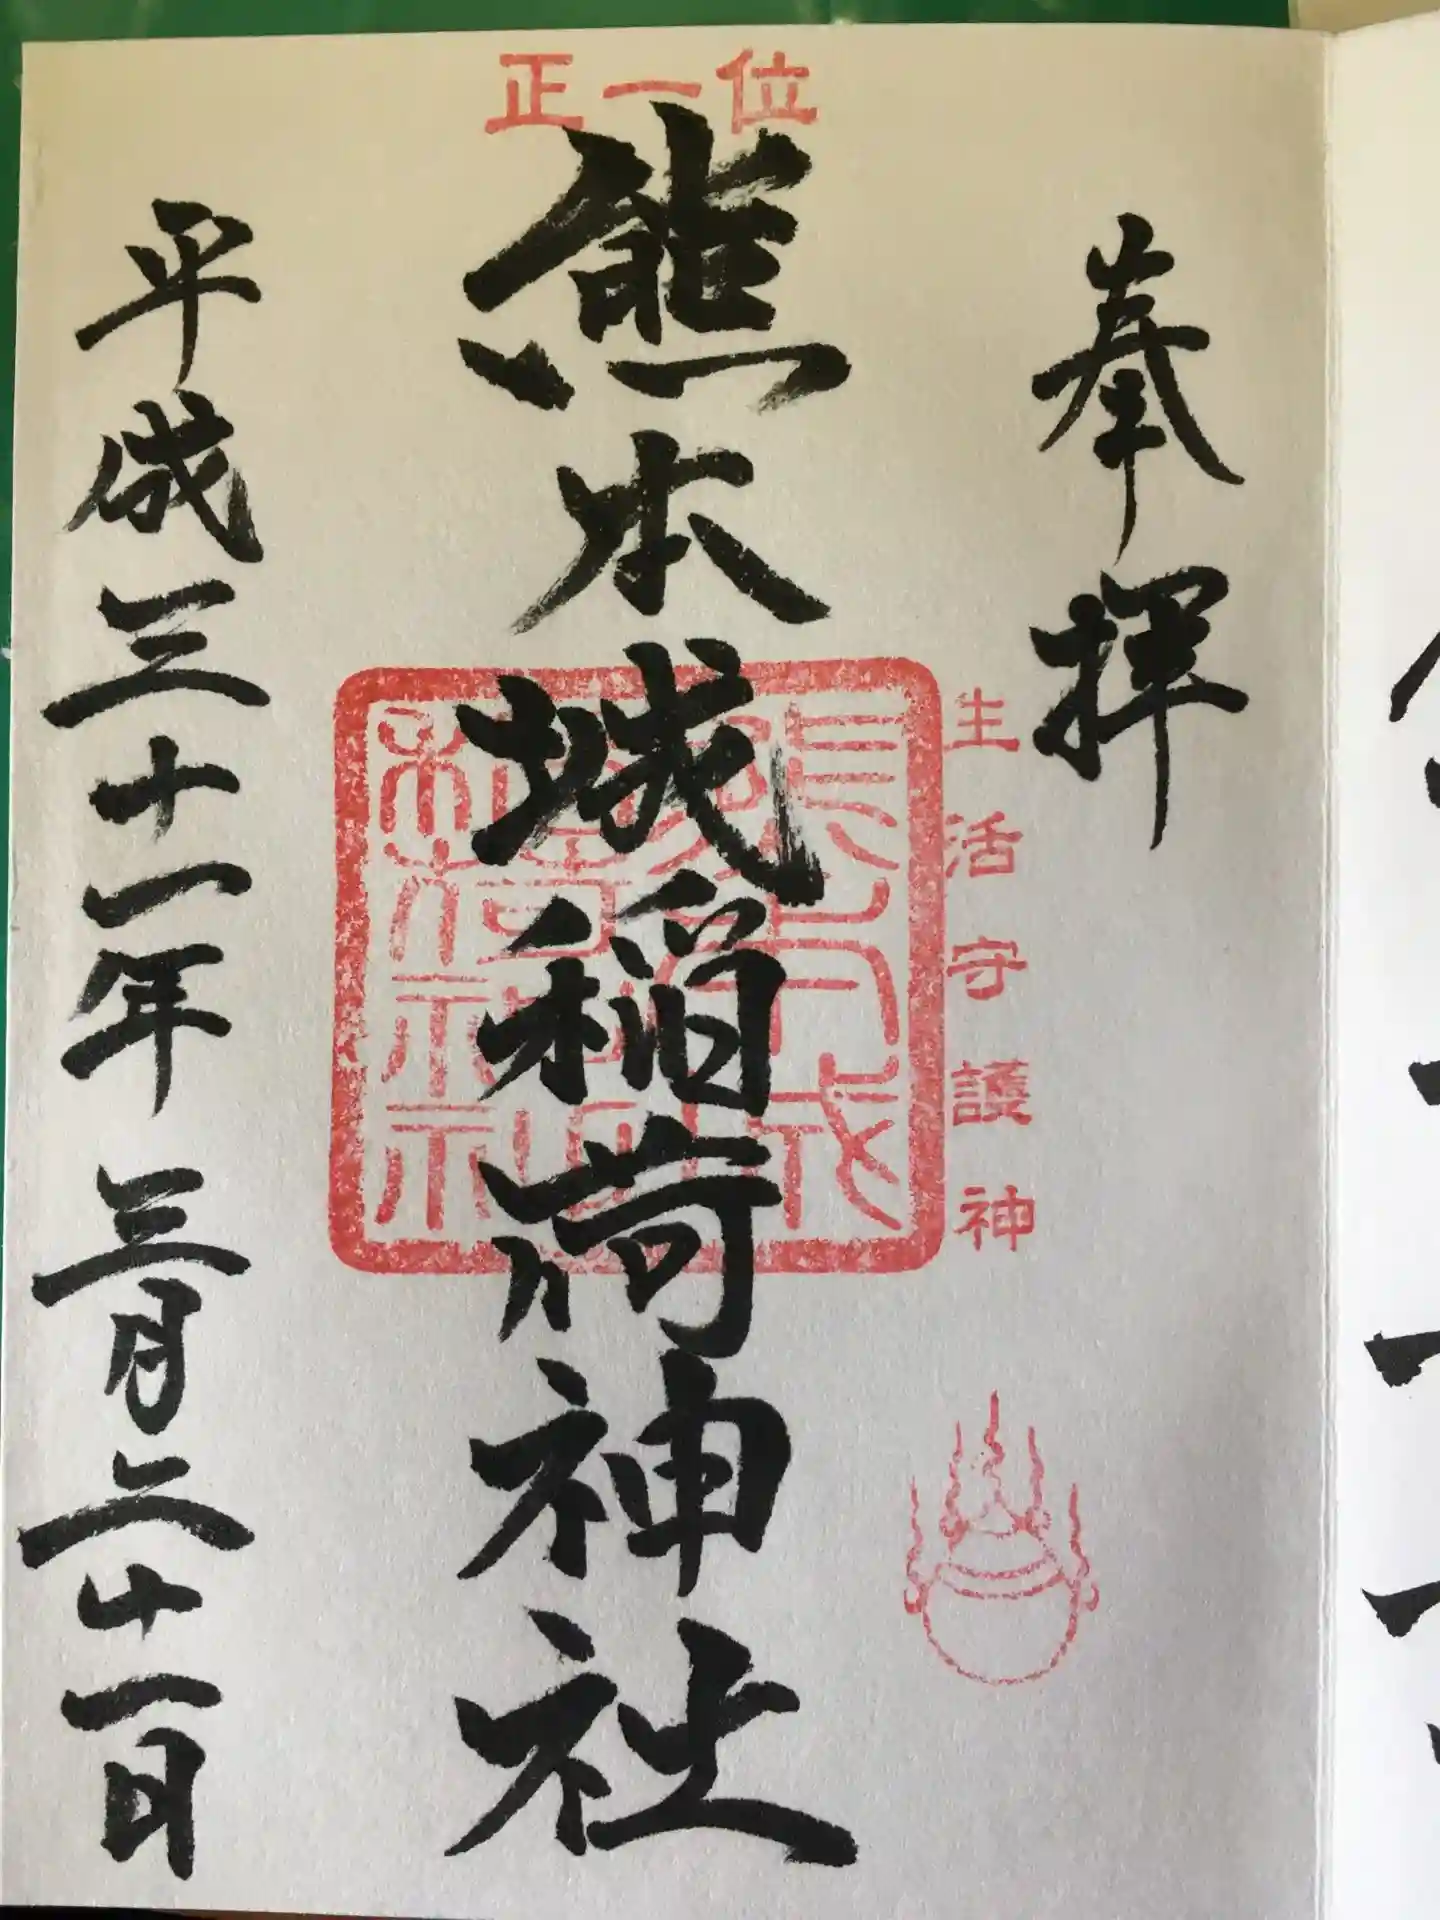 奉拝
正一位
熊本城稲荷神社
生活守護神
平成三十一年三月二十一日